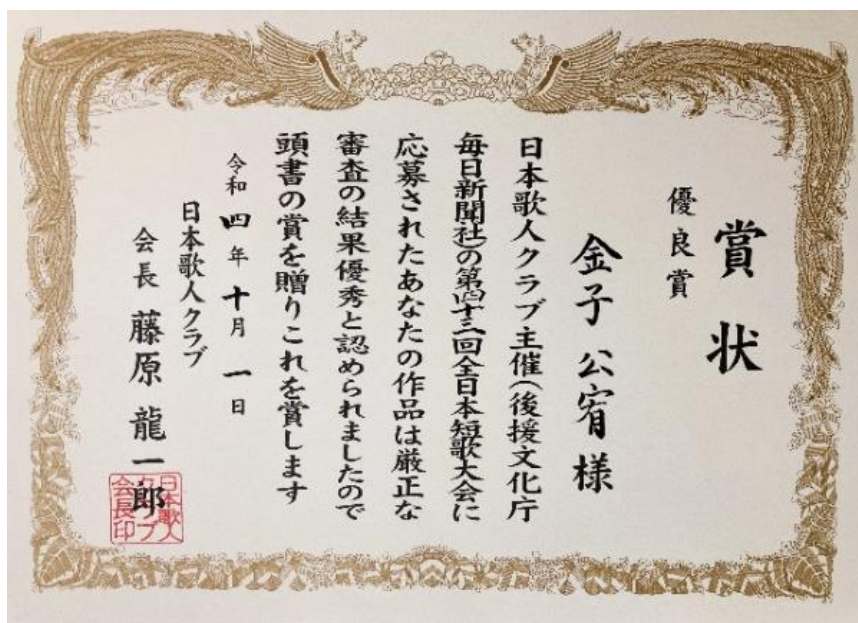 賞状
優良賞
金子公宥様
日本歌人クラブ主催(後援文化庁
毎日新聞社)の第四十三回全日本短歌大会に
応募されたあなたの作品は厳正な
審査の結果優秀と認められましたので
頭書の賞を贈りこれを賞します
令和四年十月一日
日本歌人クラブ
会長 藤原龍一郎
日本歌人
クラブ
会長印